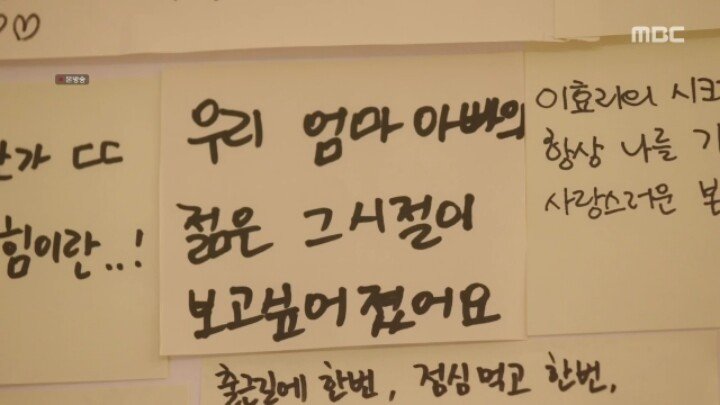 MBC
본방송
우리 엄마 아빠의
젊은 그 시절이
보고싶어졌어요
가 ㄷㄷ
힘이란..!
이효리의 시크
항상 나를 기
사랑스러운
출근길에 한번, 점심먹고 한번,